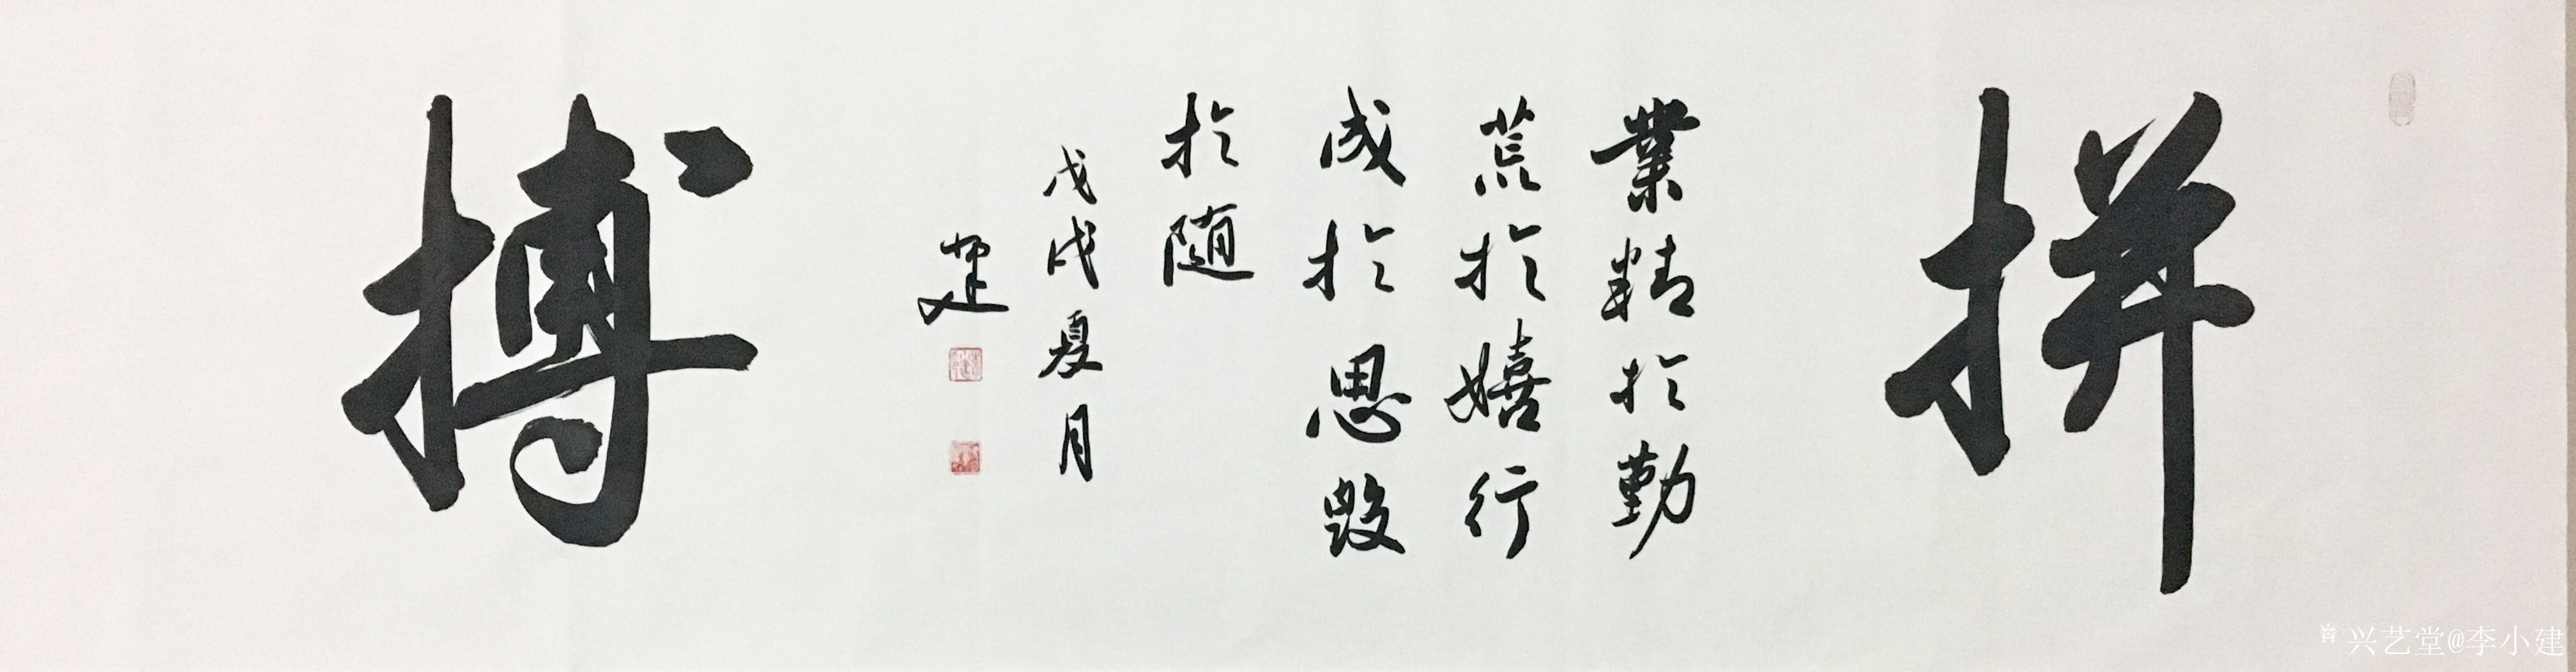 拼
業精於勤
荒於嬉行
成於思毁
於随
戊戌夏月
建
搏
兴艺堂@李小建